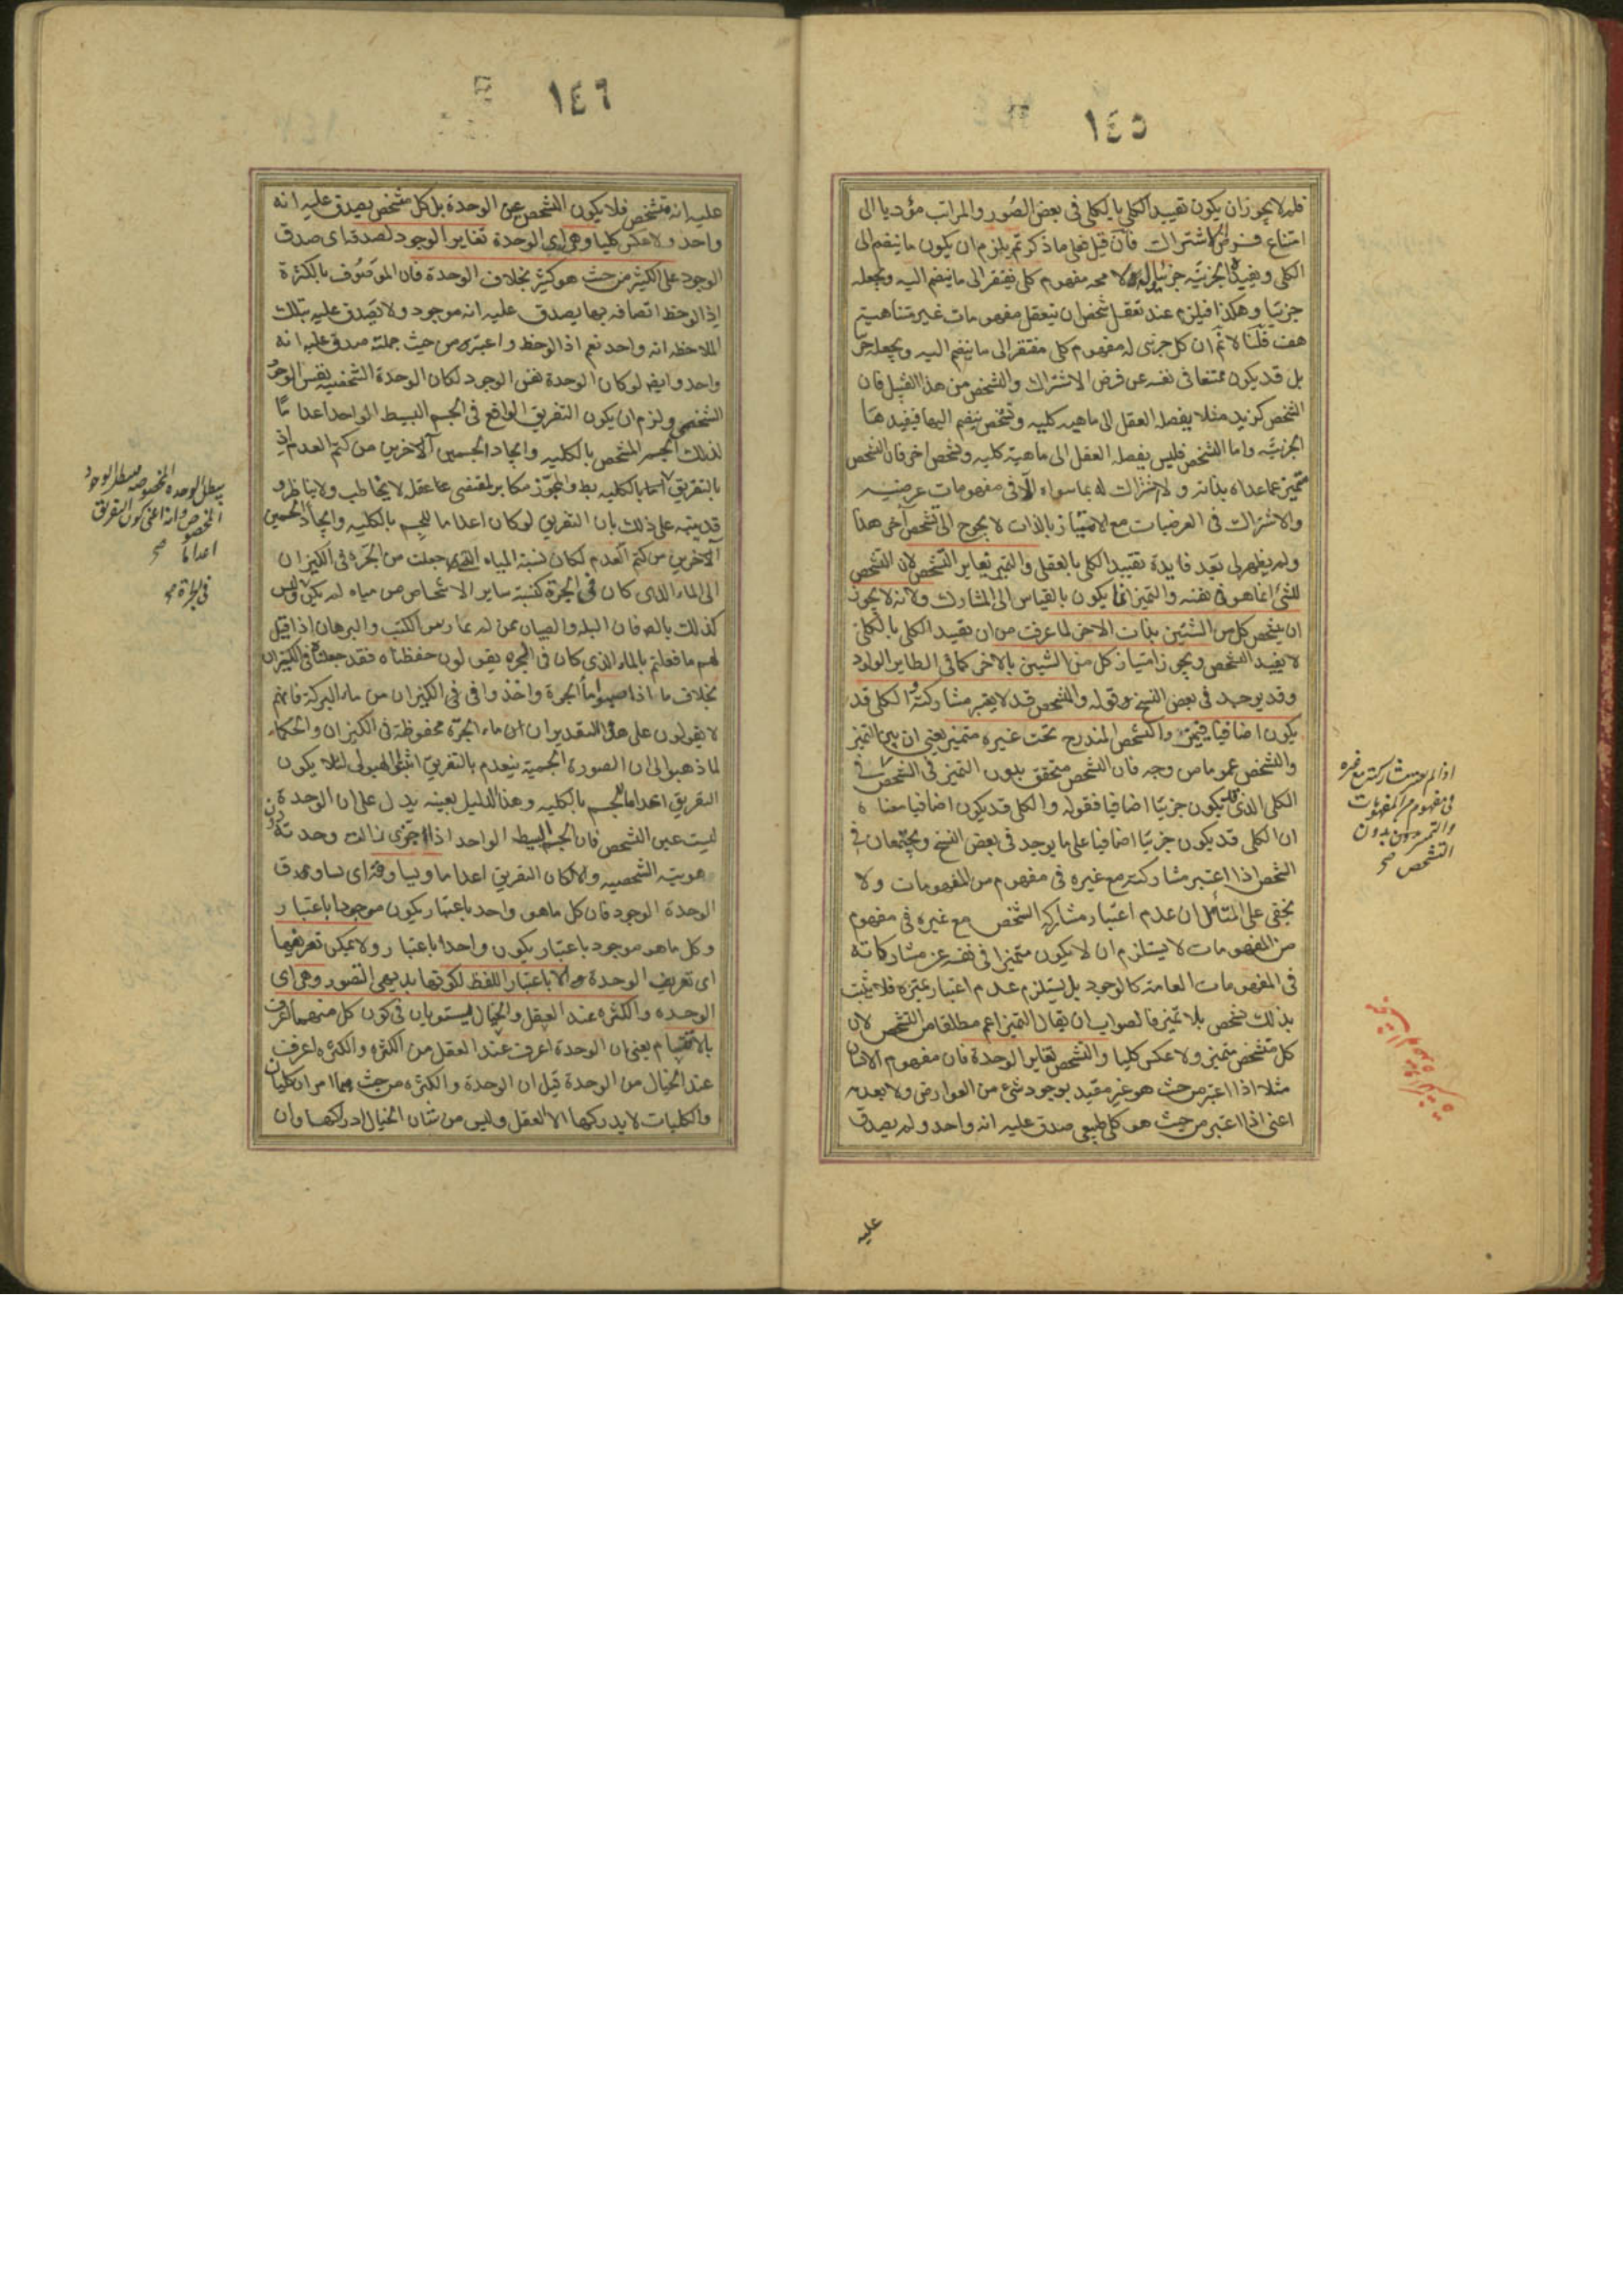 ١٤٥
فلم لا يجوز ان يكون تقييد الكلي بالكلي في بعض الصور والمراتب مؤديا الى
امتناع فرض الاشتراك فان قيل فعلى ما ذكرتم يلزم ان يكون ما ينضم الى
الكلي ويفيده الجزئية جزئيا وله لا محه مفهوم كلي يفتقر الى ما ينضم اليه ويجعله
جزئيا وهكذا فيلزم عند تعقل شخص ان يتعقل مفهومات غير متناهية
هف قلنا لا نم ان كل جزئي له مفهوم كلي مفتقر الى ما ينضم اليه ويجعله جزئيا
بل قد يكون ممتنعا في نفسه عن فرض الاشتراك والشخص من هذا القبيل فان
الشخص كزيد مثلا يفصله العقل الى ماهيه كليه وتشخص ينضم اليها فيفيدها
الجزئية واما الشخص فليس يفصله العقل الى ماهية كليه وتشخص اخر فان الشخص
متميز عما عداه بذاته ولا اشتراك له بما سواه الا في مفهومات عرضيه
والاشتراك في العرضيات مع الامتياز بالذات لا يحوج الى تشخص آخر هذا
ولم يظهر لي بعد فايدة تقييد الكلي بالعقلي والتميز يغاير التشخص لان التشخص
للشئ انما هو في نفسه والتميز انما يكون بالقياس الى المشارك ولانه لا يجوز
ان يتشخص كل من الشيئين بذات الاخر لما عرفت من ان تقييد الكلي بالكلي
لا يفيد التشخص ويجوز امتياز كل من الشيئين بالاخر كما في الطاير الولود
وقد يوجد في بعض النسخ قوله والتشخص قد لا يعتبر مشاركته والكلي قد
يكون اضافيا فيتميز والشخص المندرج تحت غيره متميز يعني ان بين التميز
والتشخص عموما من وجه فان التشخص متحقق بدون التميز في الشخص في
الكلي الذي يكون جزئيا اضافيا فقوله والكلي قد يكون اضافيا معناه
ان الكلي قد يكون جزئيا اضافيا على ما يوجد في بعض النسخ ويجتمعان في
الشخص اذا اعتبر مشاركته مع غيره في مفهوم من المفهومات ولا
يخفى على المتأمل ان عدم اعتبار مشاركة الشخص مع غيره في مفهوم
من المفهومات لا يستلزم ان لا يكون متميزا في نفسه عن مشاركاته
في المفهومات العامة كالوجود بل يستلزم عدم اعتبار تميزه فلا يثبت
بذلك تشخص بلا تميز فالصواب ان يقال التميز اعم مطلقا من التشخص لان
كل متشخص متميز ولا عكس كليا والتشخص يغاير الوحدة فان مفهوم الانسان
مثلا اذا اعتبر من حيث هو غير مقيد بوجود شئ من العوارض ولا بعدمه
اعني اذا اعتبر من حيث هو كلي طبيعي صدق عليه انه واحد ولم يصدق
عليه
اذا لم يعتبر مشاركته مع غيره
في مفهوم من المفهومات
والتميز بدون
التشخص صح
١٤٦
عليه انه متشخص فلا يكون التشخص عين الوحدة بل كل متشخص يصدق عليه انه
واحد ولا عكس كليا وهي اي الوحدة تغاير الوجود لصدقه اي صدق
الوجود على الكثير من حيث هو كثير بخلاف الوحدة فان الموصوف بالكثرة
اذا لوحظ اتصافه بها يصدق عليه انه موجود ولا يصدق عليه بتلك
الملاحظه انه واحد نعم اذا لوحظ واعتبر من حيث جملته صدق عليه انه
واحد وايض لو كان الوحدة نفس الوجود لكان الوحدة الشخصية نفس الوجود
الشخصي ولزم ان يكون التفريق الواقع في الجسم البسيط الواحد اعداما
لذلك الجسم المشخص بالكليه وايجاد الجسمين آلاخرين من كتم العدم اذ
بالتفريق بالكليه بط والمجوز مكابر لمقتضى عقله لا يخاطب ولا يناظر و
قد ينبه على ذلك بان التفريق لو كان اعداما للجسم بالكليه وايجادا لجسمين
آلاخرين من كتم العدم لكان نسبة المياه التي جعلت من الجرة في الكيزان
الى الماء الذي كان في الجرة كنسبة ساير الاشخاص من مياه لم يكن وليس
كذلك بالضرورة فان البله والصبيان ممن لم يمارس الكتب والبرهان اذا قيل
لهم ما فعلتم بالماء الذي كان في الجره يقولون حفظناه فقد جعلناه في الكيزان
بخلاف ما اذا صبوا ماء الجرة واخذوا في الكيزان من ماء البركة فانهم
لا يقولون على هذا التقدير ان ماء الجرة محفوظة في الكيزان والحكماء
لما ذهبوا الى ان الصورة الجسمية ينعدم بالتفريق اثبتوا الهيولى لئلا يكون
التفريق اعداما للجسم بالكليه وهذا الدليل بعينه يدل على ان الوحدة
ليست عين التشخص فان الجسم البسيط الواحد اذا جزى زالت وحدته دون
هويته الشخصيه والا لكان التفريق اعداما ويساوقه اي يساوق
الوحدة الوجود فان كل ما هو واحد باعتبار يكون موجودا باعتبار
وكل ما هو موجود باعتبار يكون واحدا باعتبار ولا يمكن تعريفها
اي تعريف الوحدة الا باعتبار اللفظ لكونها بديهي التصور وهي اي
الوحده والكثره عند العقل والخيال يستويان في كون كل منهما اعرف
بالانقسام يعني ان الوحدة اعرف عند العقل من الكثره والكثره اعرف
عند الخيال من الوحدة قيل ان الوحدة والكثره من حيث هما امران كليان
والكليات لا يدركها الا العقل وليس من شان الخيال ادراكها وان
يبطل الوحده المخصوصه فيبطل الوجود
المخصوص وانه اعني كون التفريق
اعداما صح